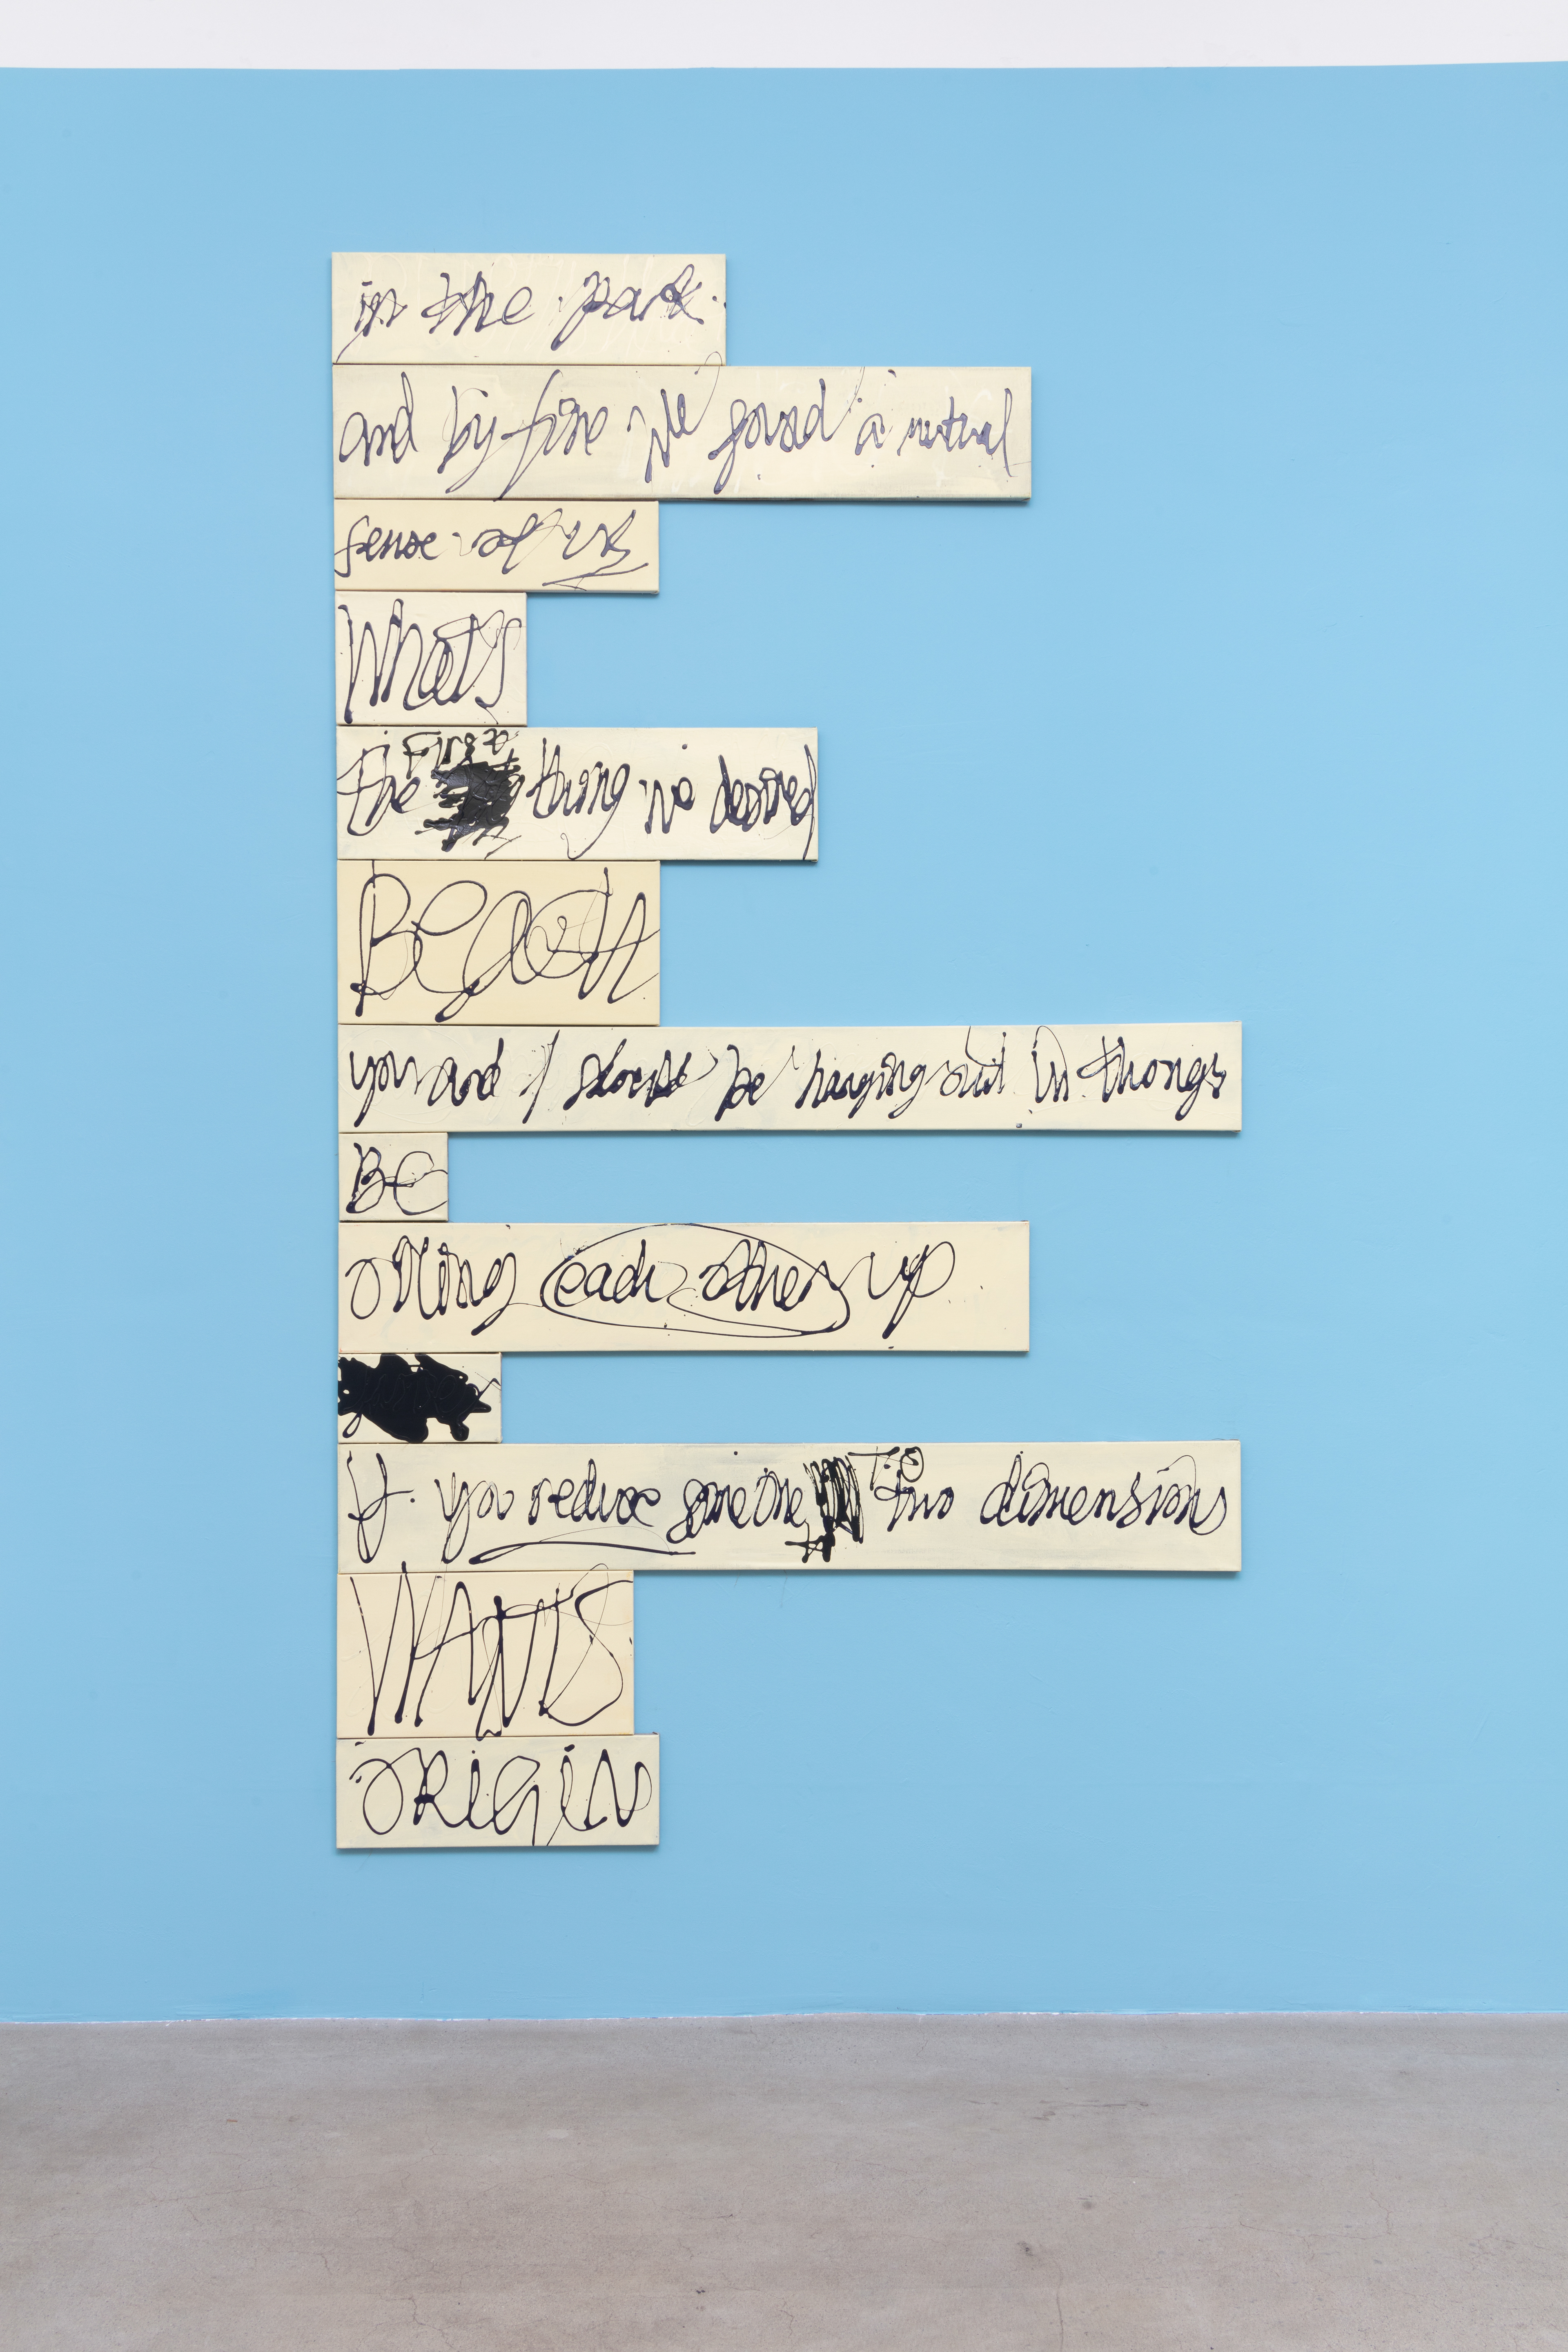 in the park.
and by five we found a mutual
sense of us
What's
the thing is desired
BEACH
you and I should be hanging out in thongs
BE
oiling each other up
If you reduce someone To two dimensions
WANTS
ORIGIN